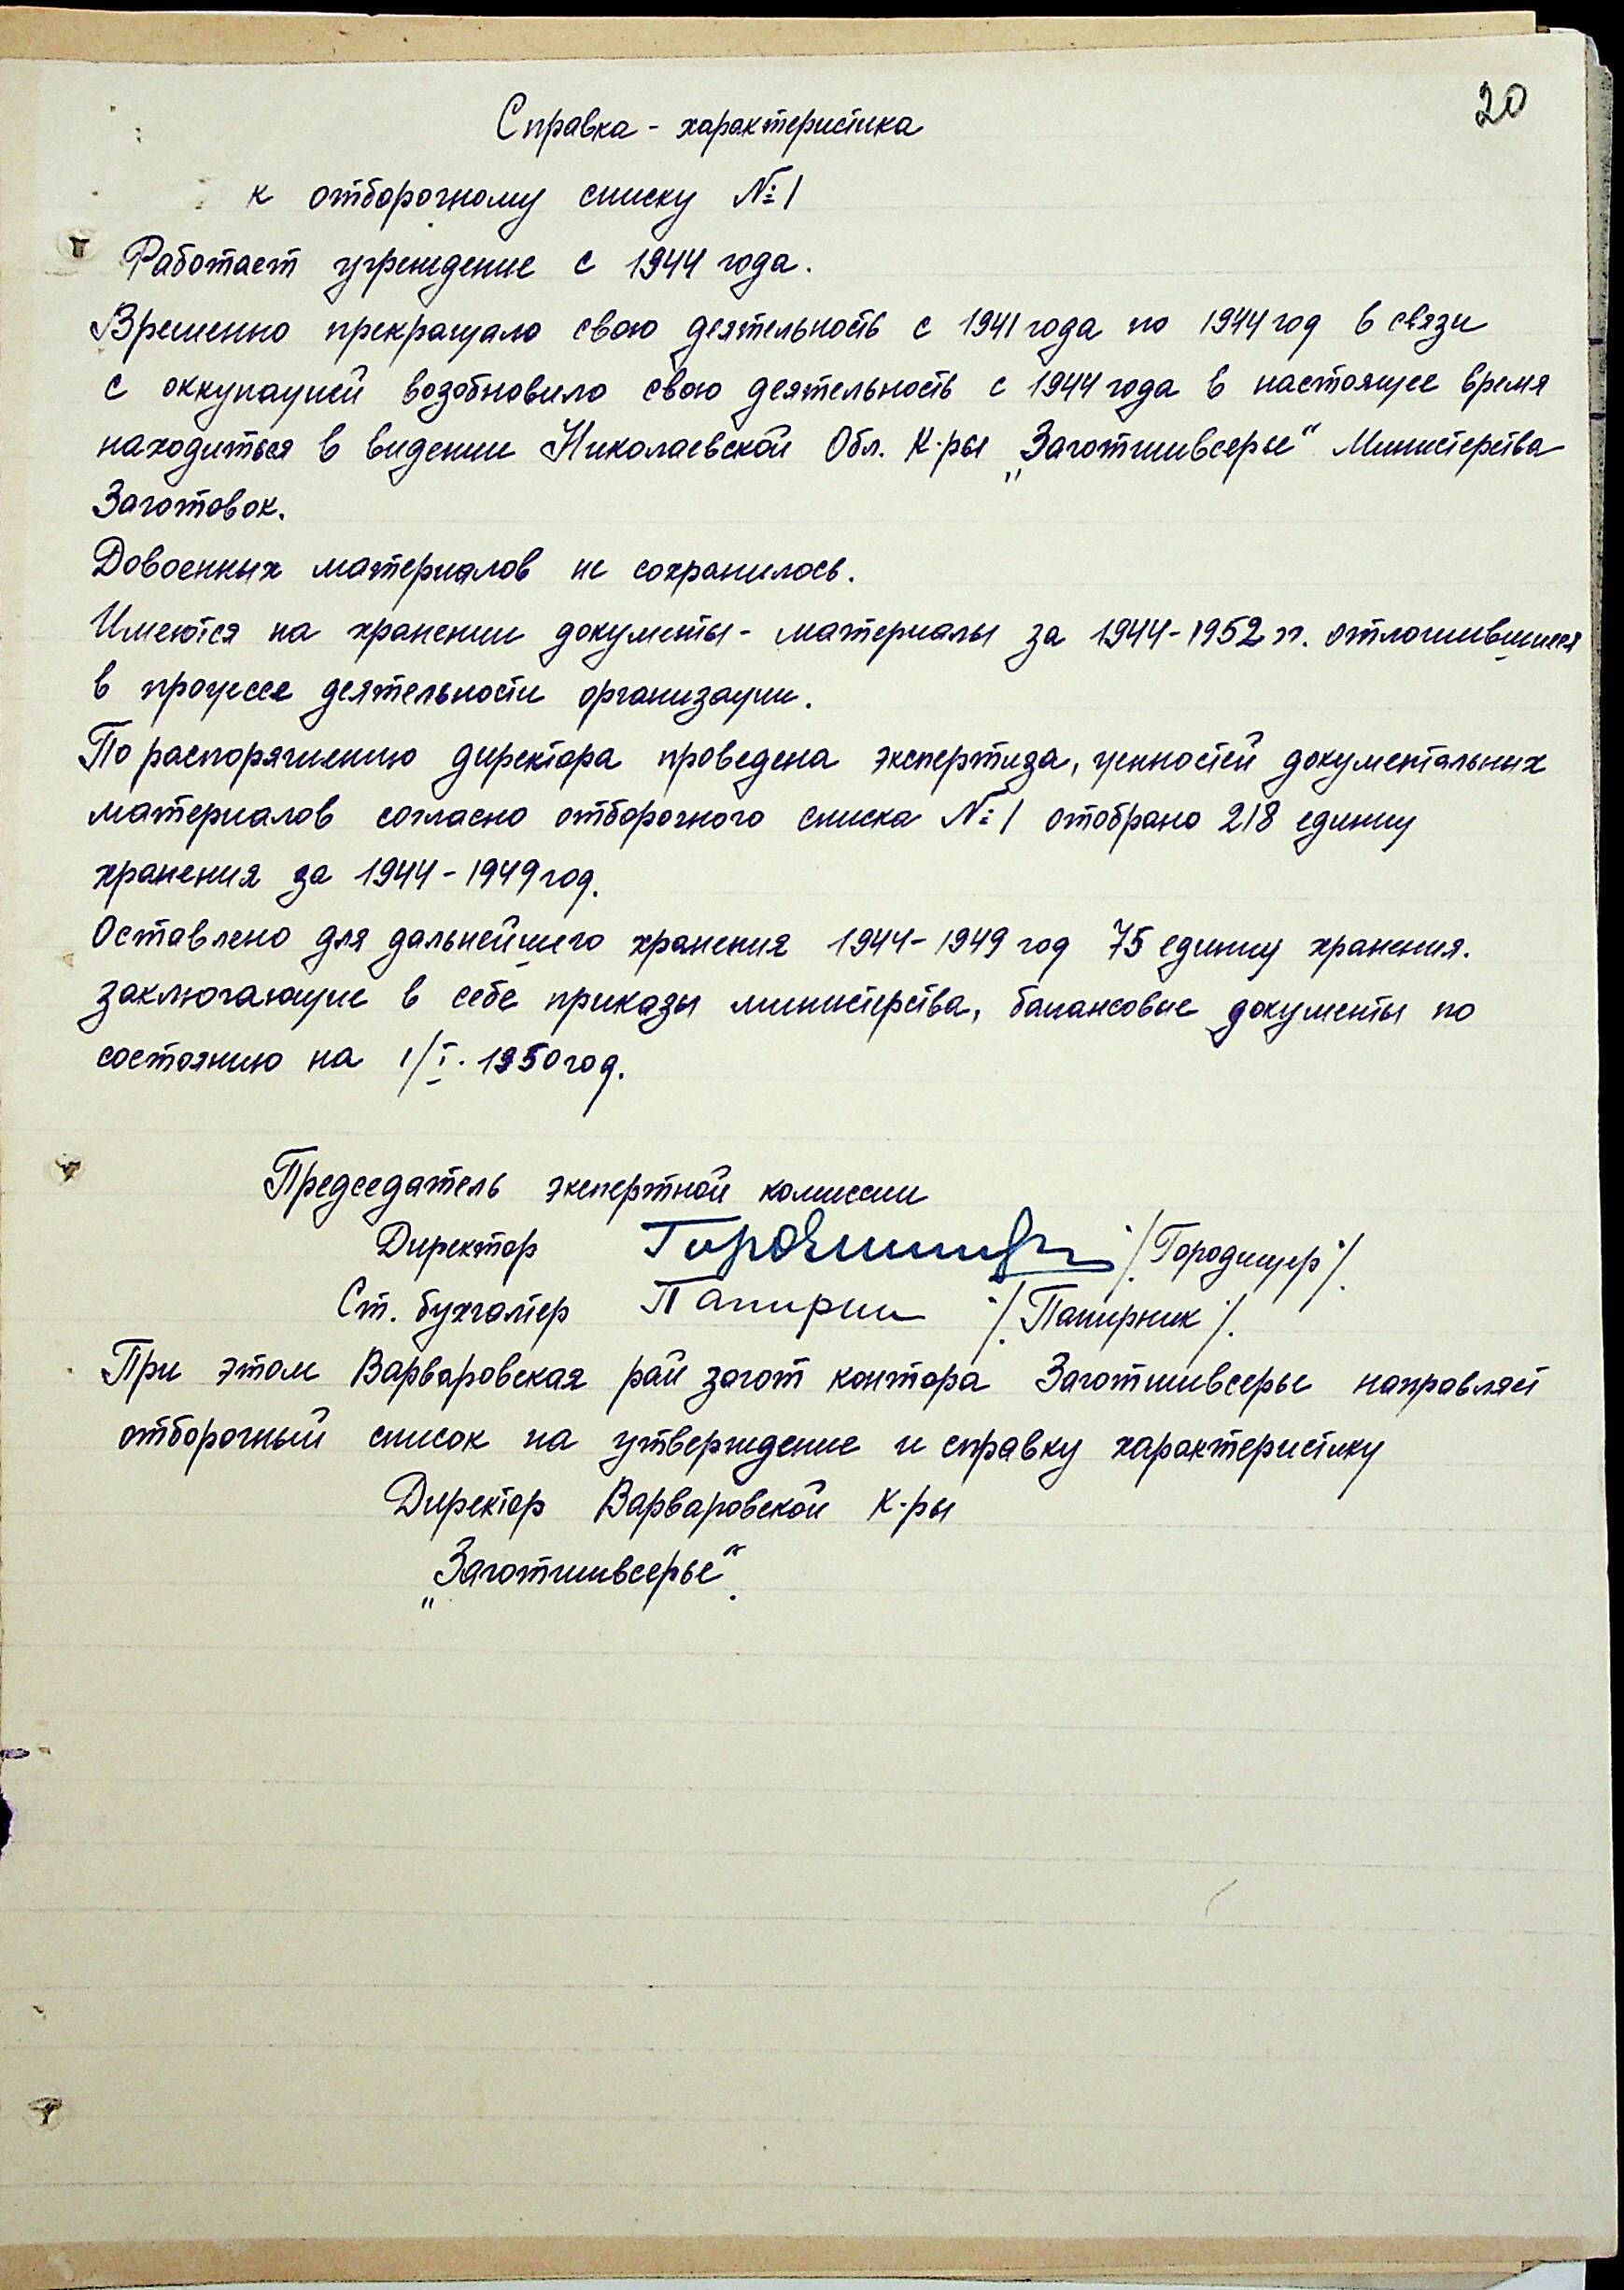 20
Справка - характеристика
к отборочному списку №1
Работает учреждение с 1944 года.
Временно прекращало свою деятельность с 1941 года по 1944 год в связи
с оккупацией возобновило свою деятельность с 1944 года в настоящее время
находиться в видении Николаевской Обл. К-ры „Заготживсерье“ Министерства
Заготовок.
Довоенных материалов не сохранилось.
Имеются на хранении документы - материалы за 1944-1952 гг. отложившиеся
в процессе деятельности организации.
По распоряжению директора проведена экспертиза, ценностей документальных
материалов согласно отборочного списка №1 отобрано 218 единиц
хранения за 1944-1949 год.
Оставлено для дальнейшего хранения 1944-1949 год 75 единиц хранения.
заключающие в себе приказы министерства, балансовые документы по
состоянию на 1/I. 1950 год.
Председатель экспертной комиссии
Директор /Городищер/.
Ст. бухгалтер Папирн /Папирник/.
При этом Варваровская рай загот контора Заготживсерье направляет
отборочный список на утверждение и справку характеристику
Директор Варваровской К-ры
„Заготживсерье“.